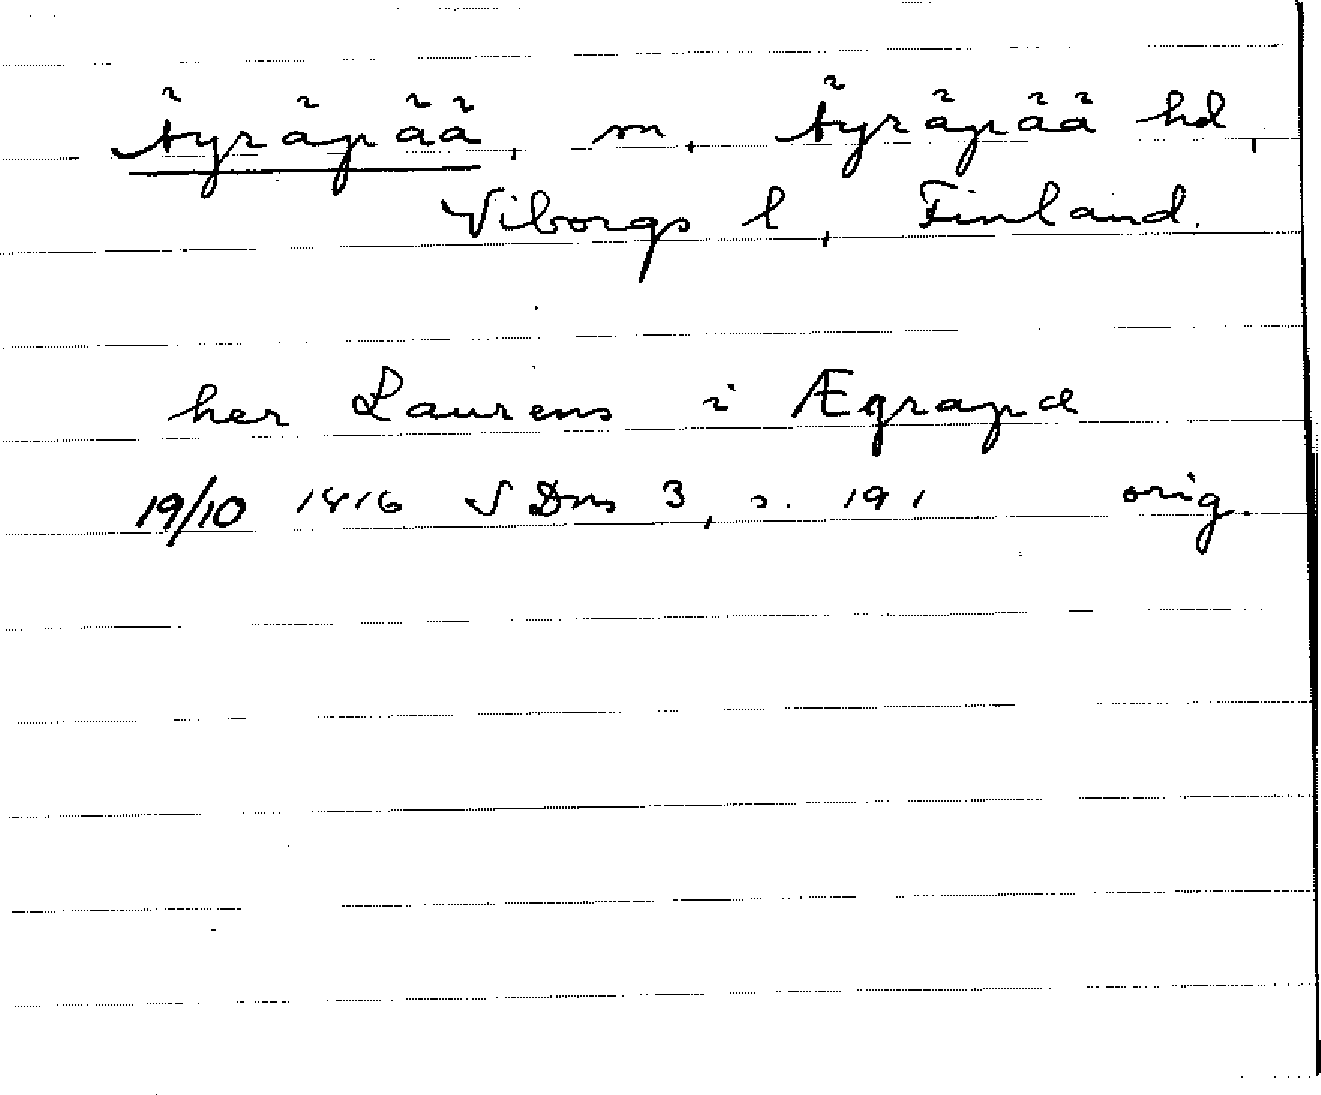 Äyräpää, sn, Äyräpää hd,
Viborgs l, Finland.
her Laurens i Ægrapæ
19/10 1416 SDns 3, s. 191 orig.